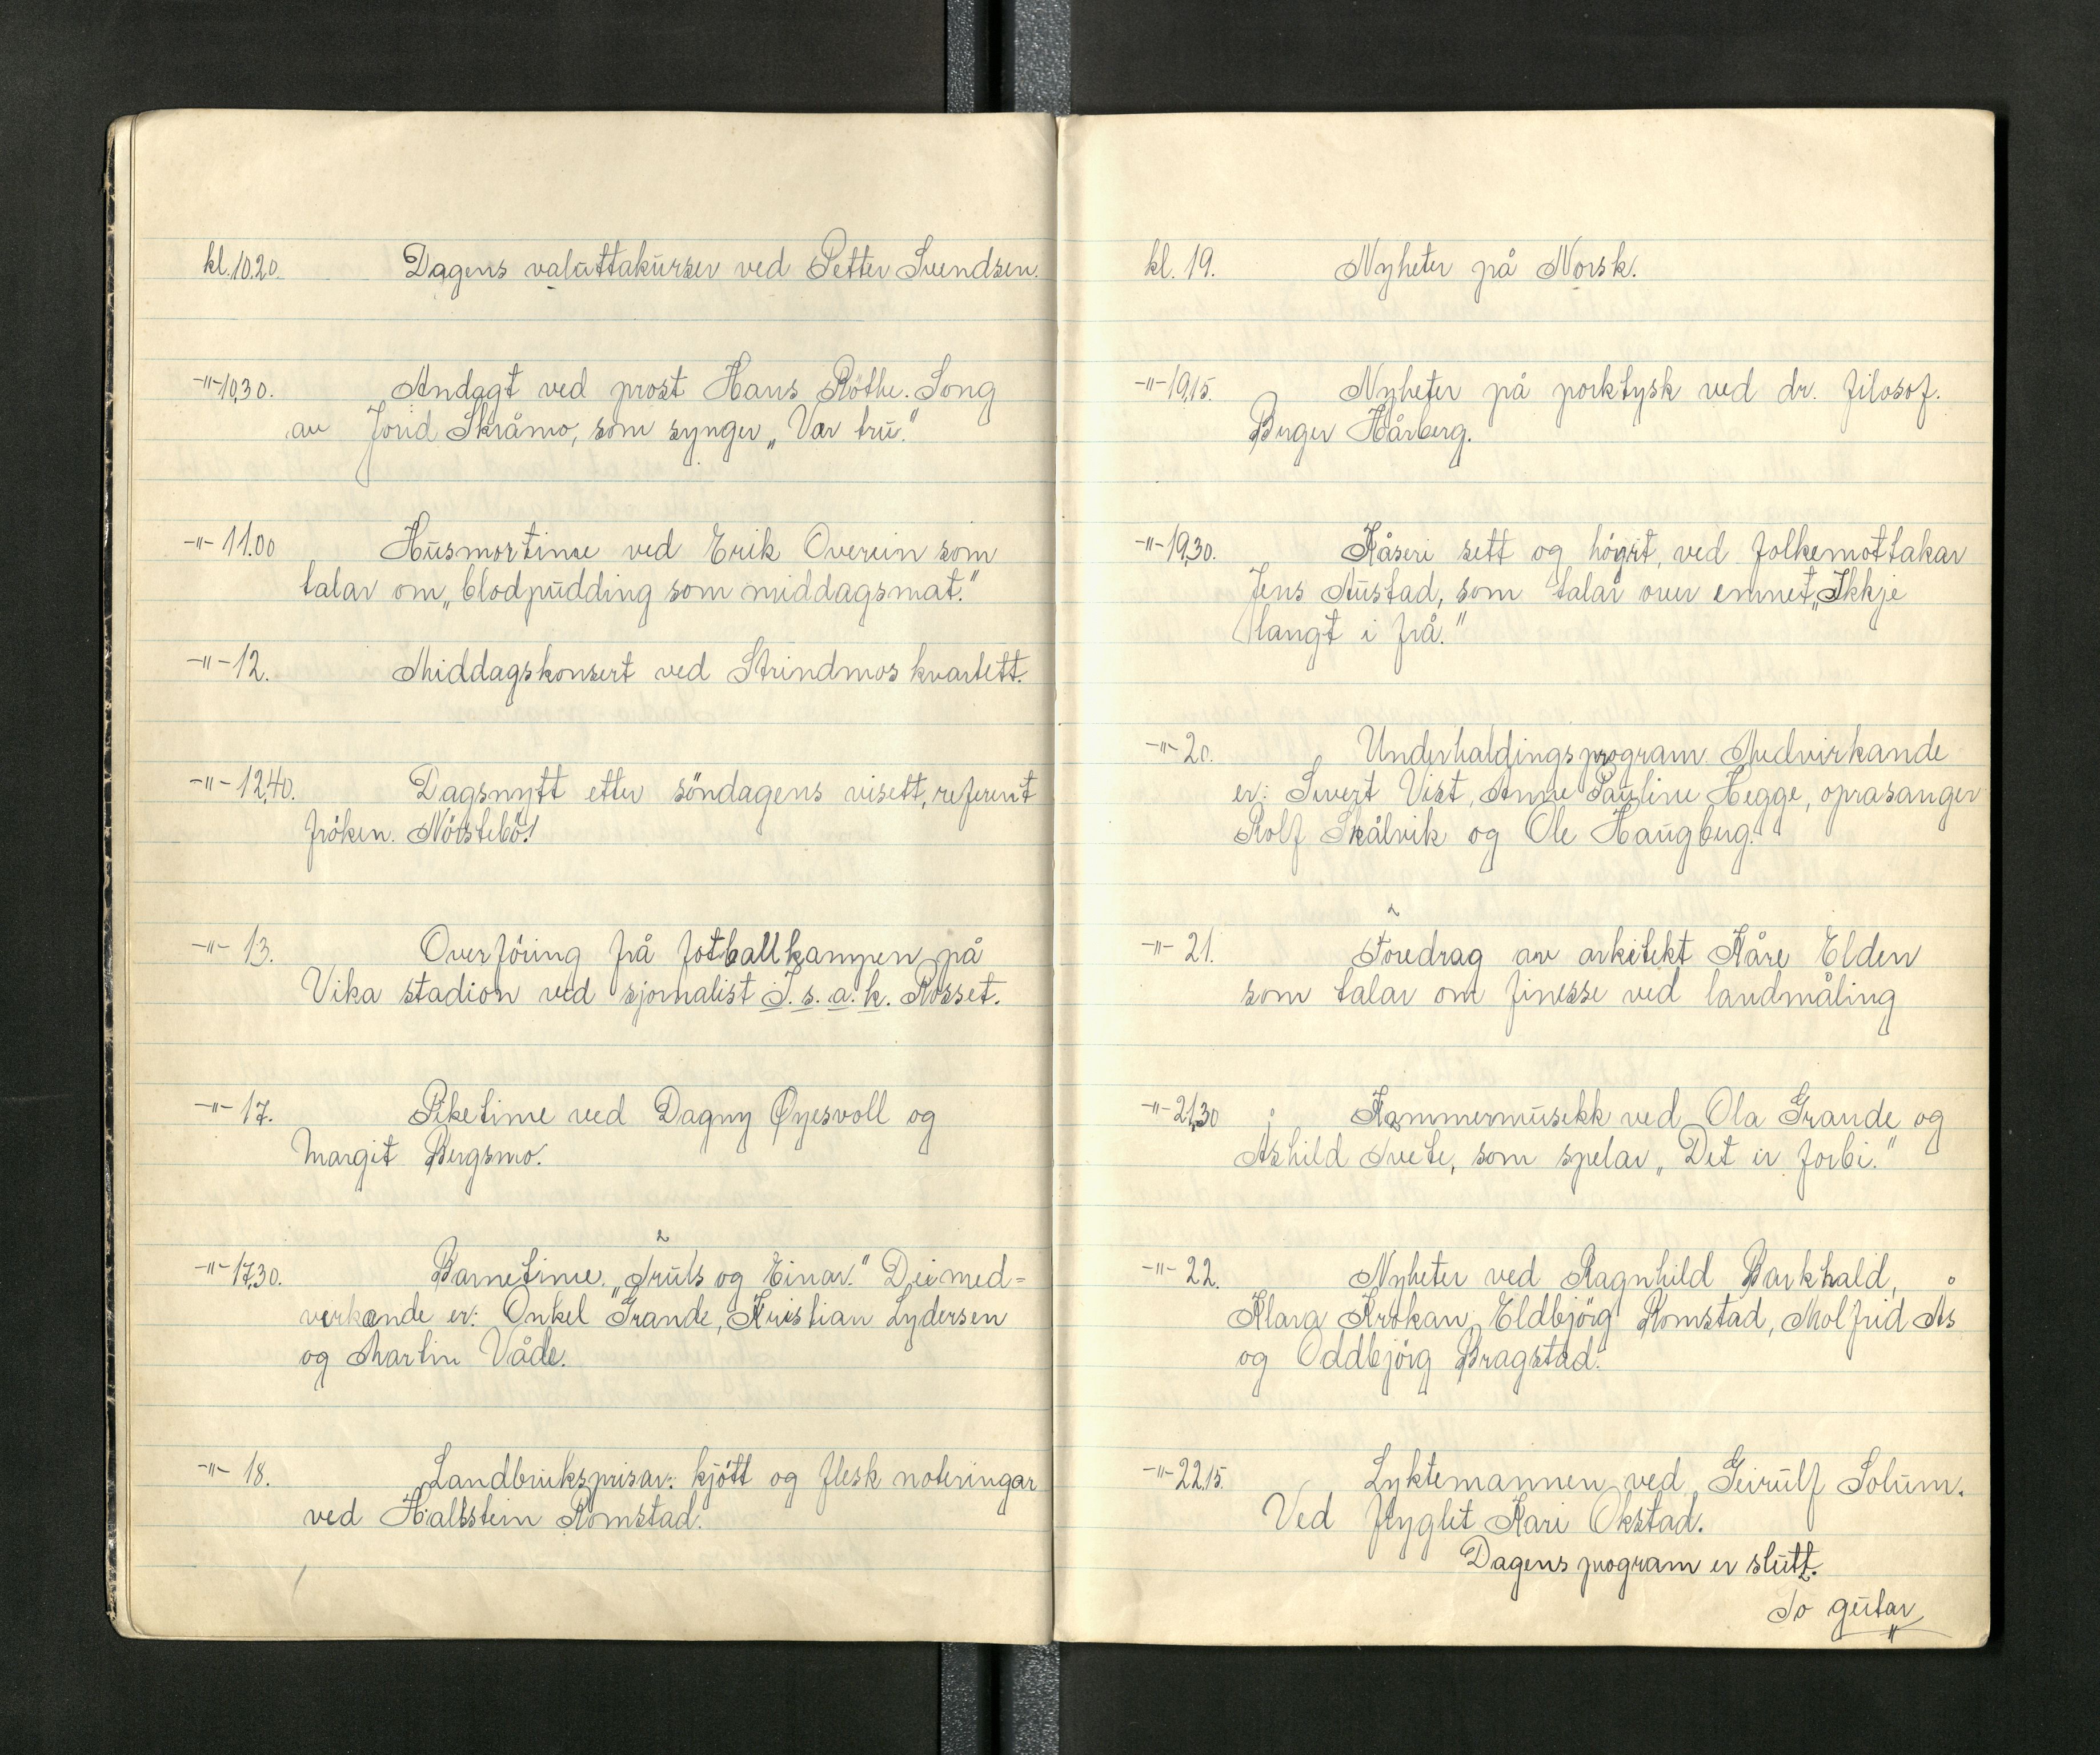 kl. 10.20. Dagens valuttakurser ved Petter Svendsen.
-"- 10,30. Andagt ved prost Hans Röthe. Song
av Jorid Skråmo, som synger „Vær tru."
-"- 11.00 Husmortime ved Erik Overein som
talar om „blodpudding som middagsmat."
-"- 12. Middagskonsert ved Strindmos kvartett.
-"- 12,40. Dagsnytt etter söndagens visett, referent
fröken. Nörstebö!
-"- 13. Overföring frå fotballkampen på
Vika stadion ved sjornalist I. s. a. k. Rosset.
-"- 17. Piketime ved Dagny Øyesvoll og
Margit Bergsmo.
-"- 17,30. Barnetime. „Truls og Einar." Dei med-
verkande er: Onkel Grande, Kristian Lydersen
og Martin Våde.
-"- 18. Landbruksprisar: kjött og flesk noteringar
ved Hallstein Romstad.
kl. 19. Nyheter på Norsk.
-"- 19,15. Nyheter på porktysk ved dr. filosof.
Birger Hårberg.
-"- 19,30. Kåseri sett og högrt, ved folkemottakar
Jens Austad, som talar over emnet „Ikkje
langt i frå."
-"- 20. Underhaldingsprogram. Medvirkande
er: Sivert Vist, Anne Pauline Hegge, oprasanger
Rolf Skålvik og Ole Haugberg.
-"- 21. Foredrag av arkitekt Kåre Elden
som talar om finesse ved landmåling
-"- 21,30 Kammermusekk ved Ola Grande og
Åshild Tvete, som spelar „Det er forbi."
-"- 22. Nyheter ved Ragnhild Barkhald,
Klara Krokan, Eldbjörg Romstad, Molfrid Ås
og Oddbjörg Bragstad.
-"- 22.15. Lyktemannen ved Geirulf Solum.
Ved flyglet Kari Okstad.
Dagens program er slutt.
To gutar